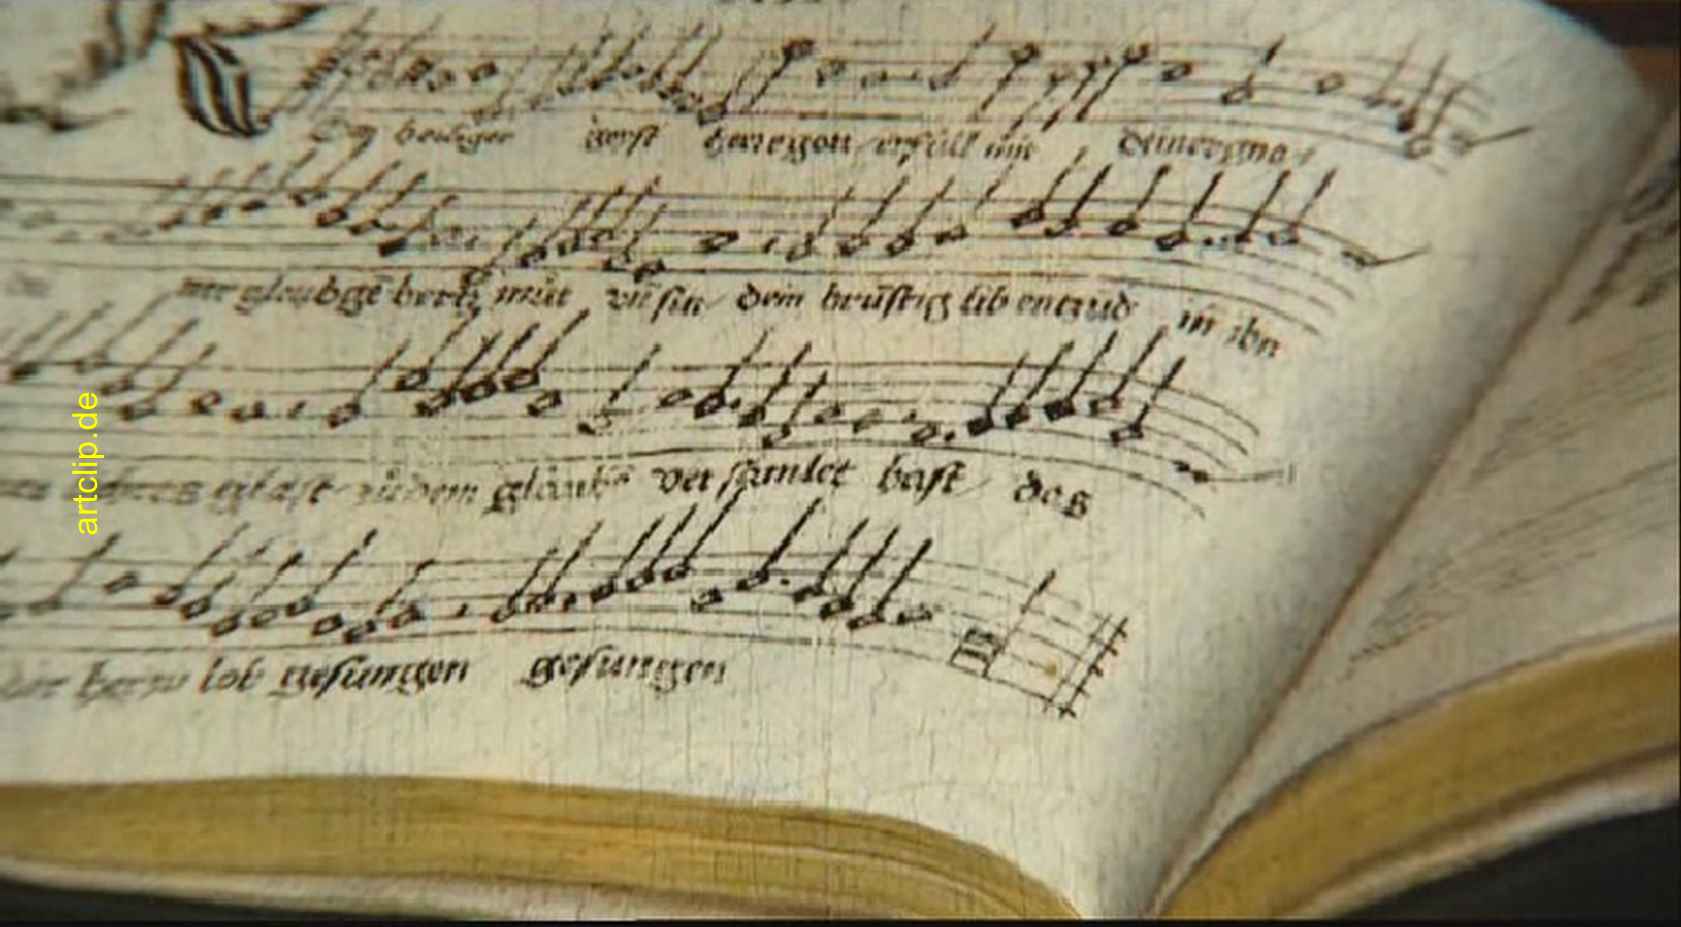 heiliger geyst herregott erfüll mit deinergna
ner gleubgē hertz mut vn̄ sin dein brūstig lib entzud in ihn
glast zu dem glaub versamlet hast das
dir herre lob gesungen gesungen
artclip.de